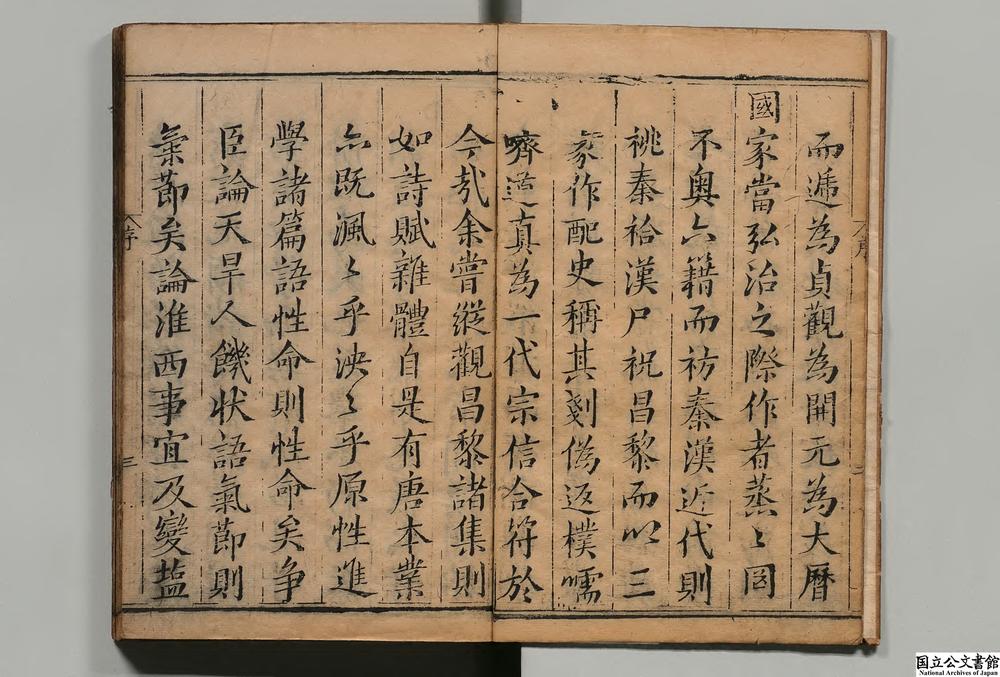 而遞為貞觀為開元為大曆
國家當弘治之際作者蒸〻罔
不奥六籍而祊秦漢近代則
祧秦祫漢尸祝昌黎而以三
彖作配史稱其剗偽返樸嚅
嚌道真為一代宗信合符於
今㢤余嘗縱觀昌黎諸集則
如詩賦雜體自是有唐本業
亦既渢〻乎泱〻乎原性進
學諸篇語性命則性命矣爭
臣論天旱人饑状語氣節則
氣節矣論淮西事宜及變塩
序
三
国立公文書館
National Archives of Japan